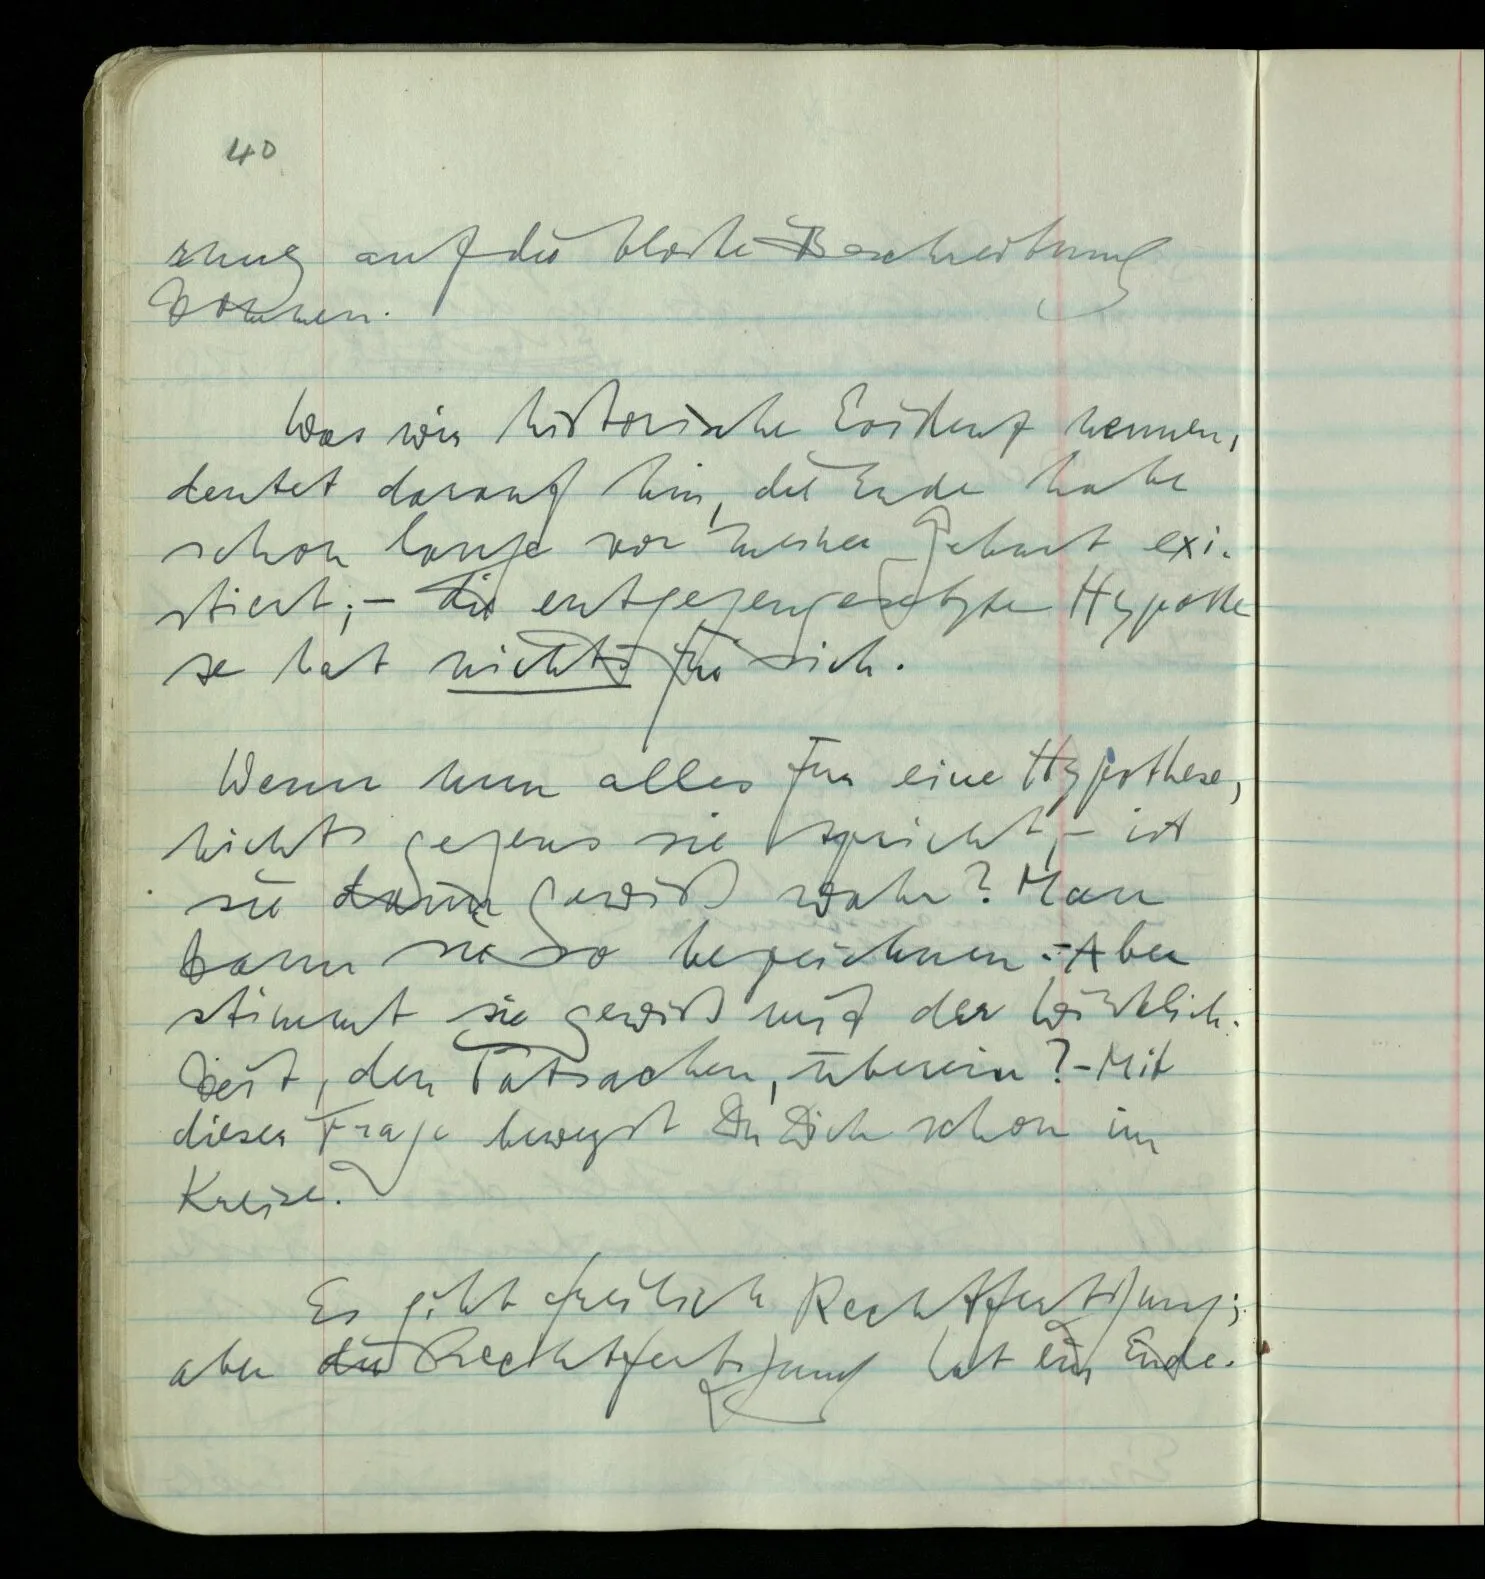 40
rung auf die bloße Beschreibung
kommen.
Was wir historische Evidenz nennen,
deutet darauf hin, die Erde habe
schon lange vor meiner Geburt exi-
stiert; – die entgegengesetzte Hypothe
se hat nichts für sich.
Wenn nun alles für eine Hypothese,
nichts gegen sie spricht, – ist
sie dann gewiß wahr? Man
kann sie so bezeichnen. – Aber
stimmt sie gewiß mit der Wirklich-
keit, den Tatsachen, überein? – Mit
dieser Frage bewegst Du Dich schon im
Kreise.
Es gibt freilich Rechtfertigung;
aber die Rechtfertigung hat ein Ende.